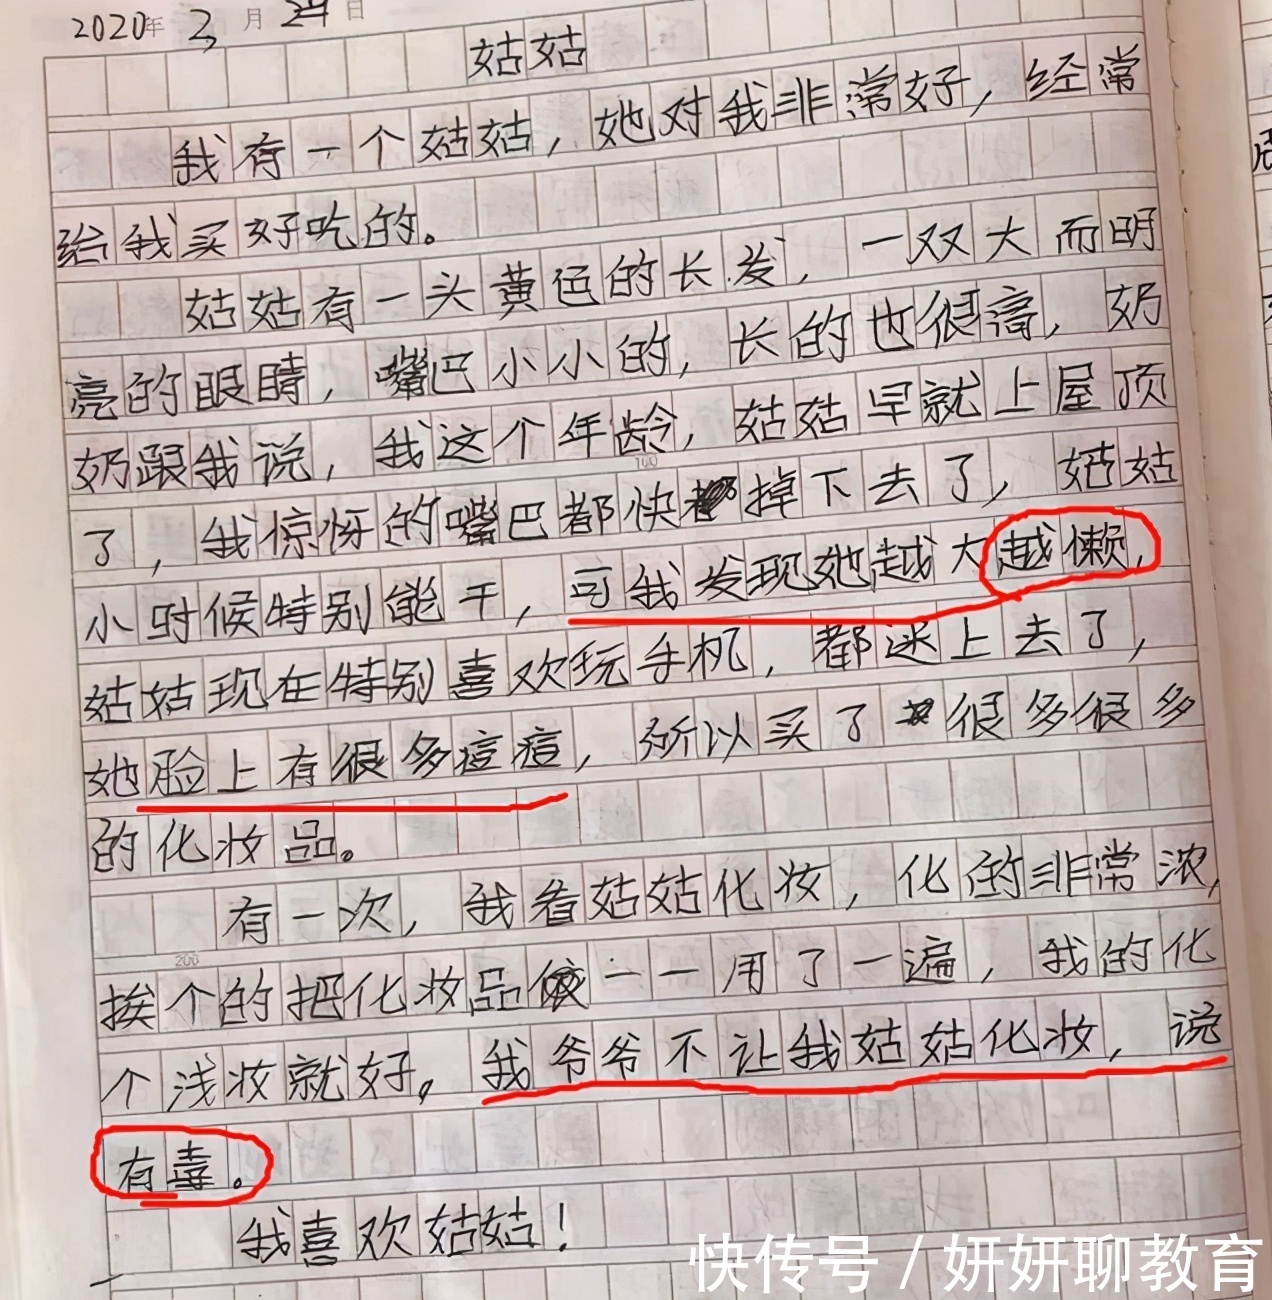 2020年 2月 24日
姑姑
我有一个姑姑，她对我非常好，经常
给我买好吃的。
姑姑有一头黄色的长发，一双大而明
亮的眼睛，嘴巴小小的，长的也很高，奶
奶跟我说，我这个年龄，姑姑早就上屋顶
100
了，我惊讶的嘴巴都快掉下去了，姑姑
小时候特别能干，可我发现她越大越懒，
姑姑现在特别喜欢玩手机，都迷上去了，
她脸上有很多痘痘，所以买了很多很多
的化妆品。
有一次，我看姑姑化妆，化的非常浓，
200
挨个的把化妆品一一用了一遍，我的化
个浅妆就好。我爷爷不让我姑姑化妆，说
有毒。
我喜欢姑姑！
快传号 / 妍妍聊教育